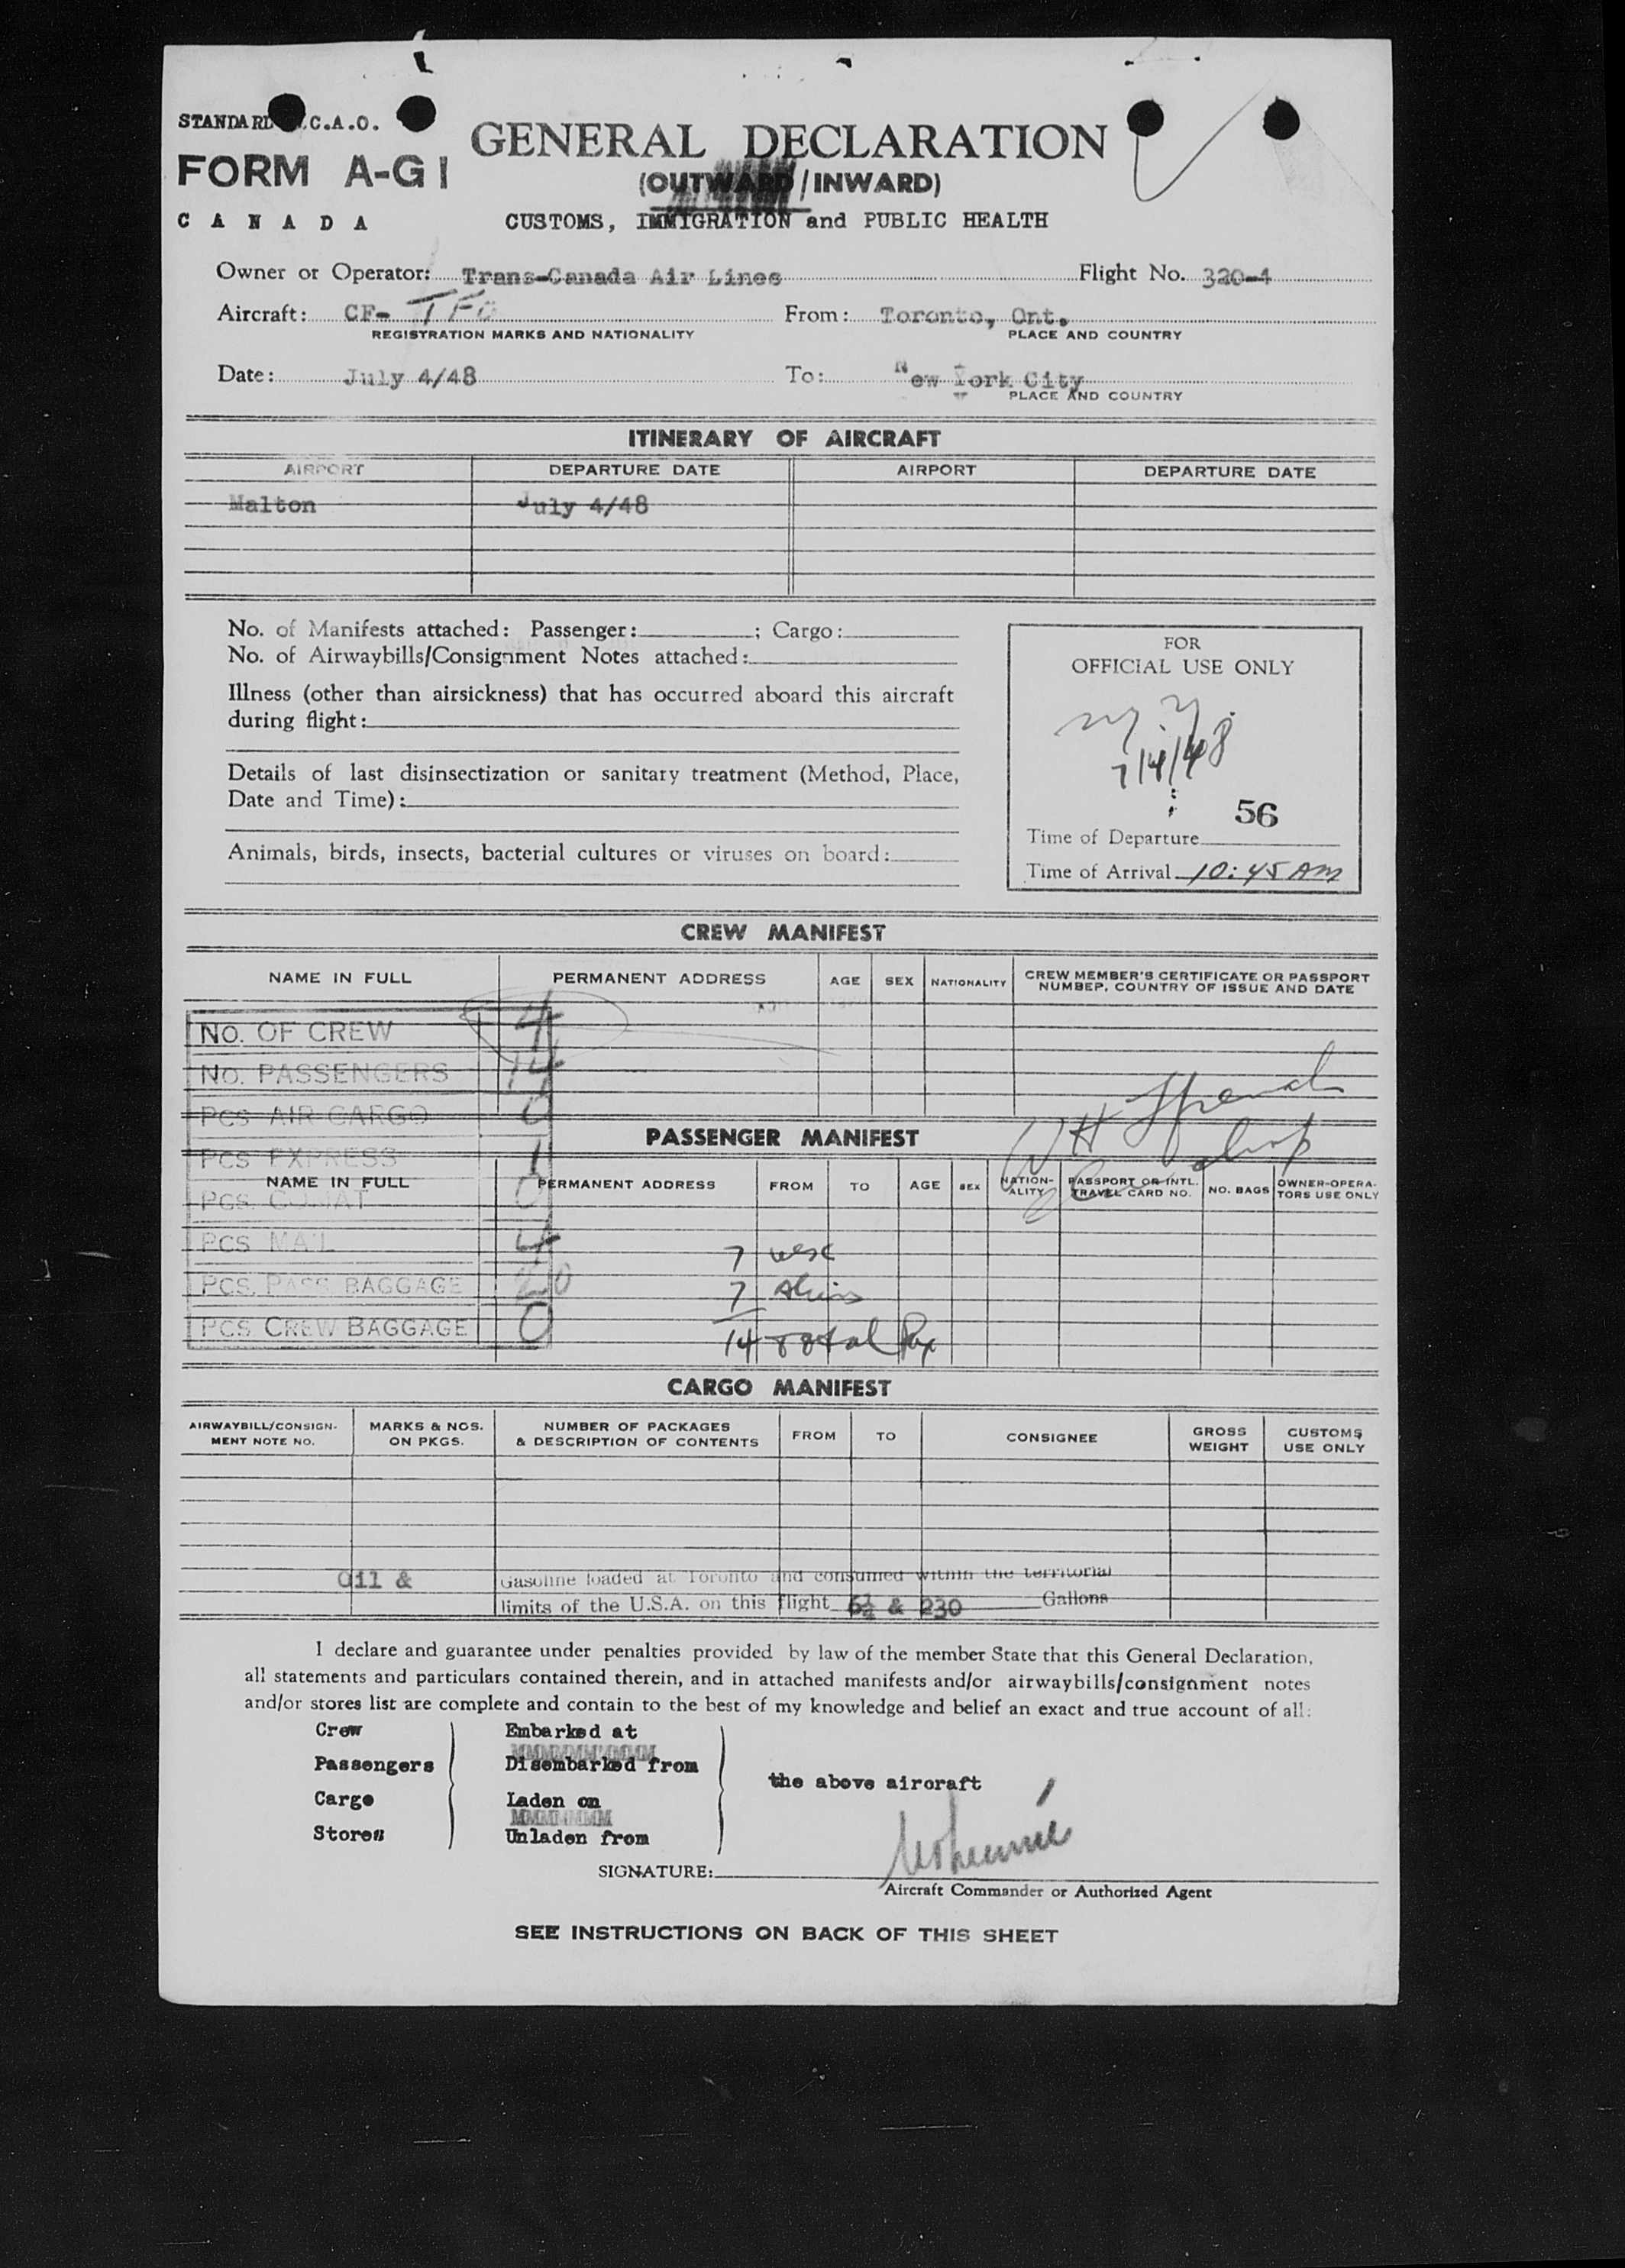 STANDARD I.C.A.O.
FORM A-G1
CANADA
GENERAL DECLARATION
(OUTWARD/INWARD)
CUSTOMS, IMMIGRATION and PUBLIC HEALTH
Owner or Operator: Trans-Canada Air Lines Flight No. 320-4
Aircraft: CF- From: Toronto, Ont.
REGISTRATION MARKS AND NATIONALITY PLACE AND COUNTRY
Date: July 4/48 To: New York City
PLACE AND COUNTRY
ITINERARY OF AIRCRAFT
AIRPORT DEPARTURE DATE AIRPORT DEPARTURE DATE
Malton July 4/48
No. of Manifests attached: Passenger: ; Cargo:
No. of Airwaybills/Consignment Notes attached:
Illness (other than airsickness) that has occurred aboard this aircraft
during flight:
Details of last disinsectization or sanitary treatment (Method, Place,
Date and Time):
Animals, birds, insects, bacterial cultures or viruses on board:
FOR
OFFICIAL USE ONLY
N.Y.
7/4/48
56
Time of Departure
Time of Arrival 10:45 AM
CREW MANIFEST
NAME IN FULL PERMANENT ADDRESS AGE SEX NATIONALITY CREW MEMBER'S CERTIFICATE OR PASSPORT
NUMBER, COUNTRY OF ISSUE AND DATE
NO. OF CREW 4
NO. PASSENGERS 14
PCS AIR CARGO 0
PCS EXPRESS 1
PCS. COMAT 0
PCS MAIL 4
PCS. PASS. BAGGAGE 20
PCS CREW BAGGAGE 0
PASSENGER MANIFEST
NAME IN FULL PERMANENT ADDRESS FROM TO AGE SEX NATION-
ALITY PASSPORT OR INTL.
TRAVEL CARD NO. NO. BAGS OWNER-OPERA-
TORS USE ONLY
7 usc
7 Aliens
14 Total Pax
CARGO MANIFEST
AIRWAYBILL/CONSIGN-
MENT NOTE NO. MARKS & NOS.
ON PKGS. NUMBER OF PACKAGES
& DESCRIPTION OF CONTENTS FROM TO CONSIGNEE GROSS
WEIGHT CUSTOMS
USE ONLY
Oil & Gasoline loaded at Toronto and consumed within the territorial
limits of the U.S.A. on this flight 6½ & 230 Gallons
I declare and guarantee under penalties provided by law of the member State that this General Declaration,
all statements and particulars contained therein, and in attached manifests and/or airwaybills/consignment notes
and/or stores list are complete and contain to the best of my knowledge and belief an exact and true account of all:
Crew Embarked at
Passengers Disembarked from
the above aircraft
Cargo Laden on
Stores Unladen from
SIGNATURE:
Aircraft Commander or Authorized Agent
SEE INSTRUCTIONS ON BACK OF THIS SHEET